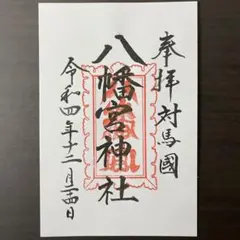 奉拝 対馬國
八幡宮神社
令和四年十二月二十四日